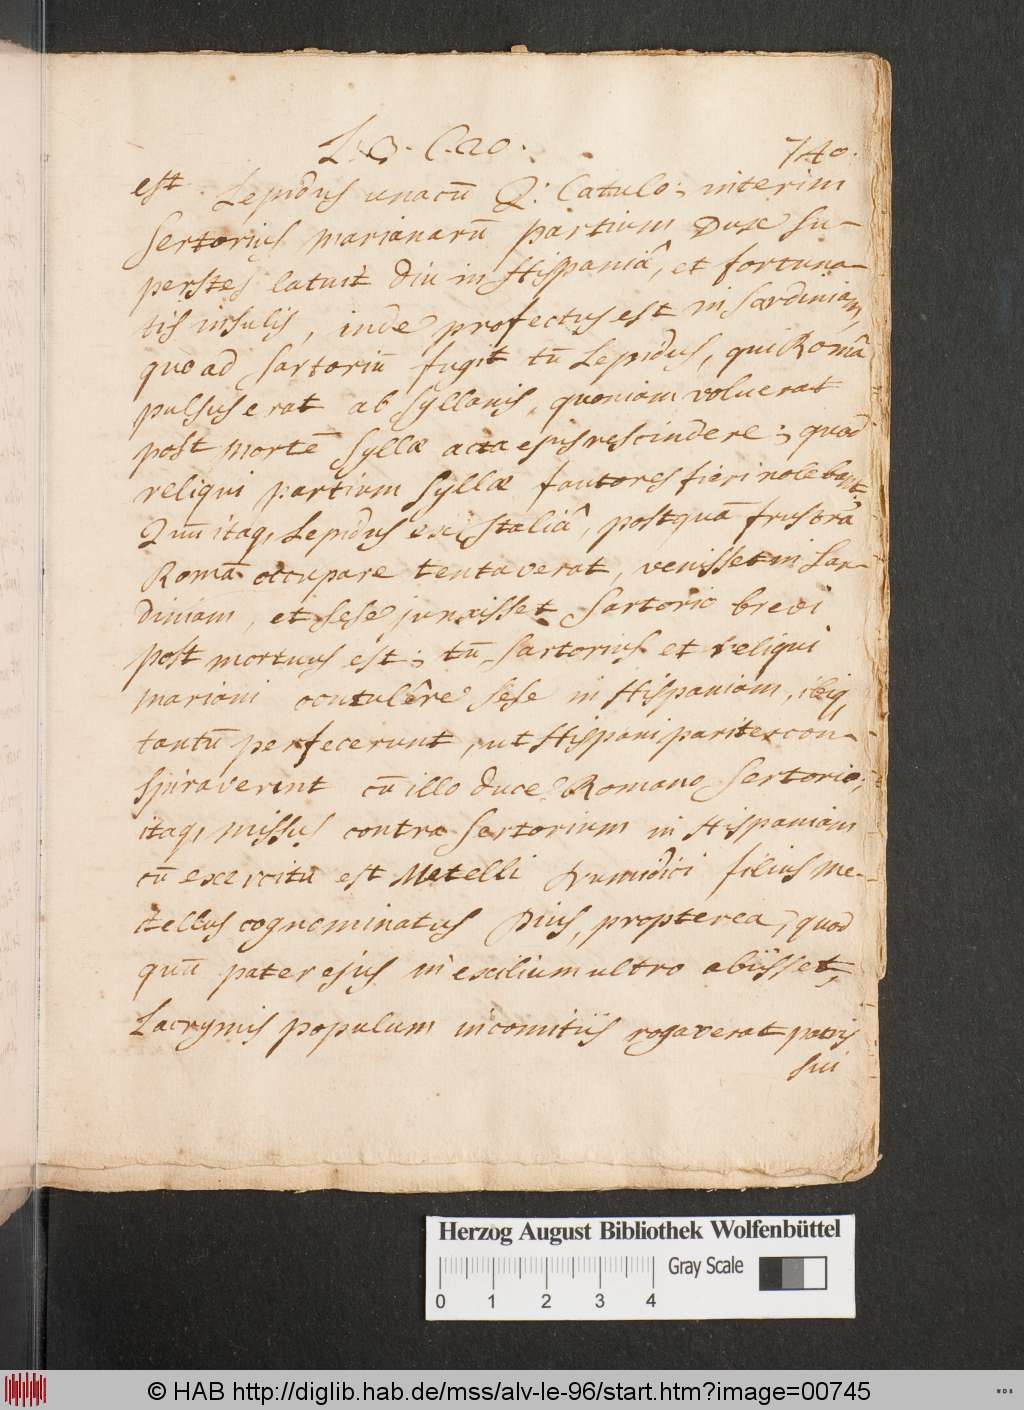 L. 3. C. 20. 740.
est. Lepidus unacū Q: Catulo; interim
Sertorius marianarū partium Dux su-
perstes latuit diu in Hispaniâ, et fortuna-
tis insulis, inde profectus est in Sardiniam,
quo ad Sartoriū fugit tū Lepidus, qui Româ
pulsus erat ab Syllanis, quoniam voluerat
post mortē Syllæ acta ejus rescindere; quod
reliqui partium Syllæ fautores fieri nolebant.
Qum itaq, Lepidus ex Italiâ, postquā frustrâ
Romā occupare tentaverat, venisset in Sar-
diniam, et sese junxisset Sartorio brevi
post mortuus est; tū Sartorius et reliqui
mariani contulêre sese in Hispaniam, ibiq,
tantū perfecerunt, ut Hispani pariter con-
spiraverint cū illo duce Romano Sertorio;
itaq, missus contra Sertorium in Hispaniam
cū exercitu est Metelli Numidici filius Me-
tellus cognominatus Pius, propterea, quod
quū pater ejus in exilium ultro abiisset,
Lacrymis populum in comitiis rogaverat patris
sui
Herzog August Bibliothek Wolfenbüttel
Gray Scale
0 1 2 3 4
© HAB http://diglib.hab.de/mss/alv-le-96/start.htm?image=00745